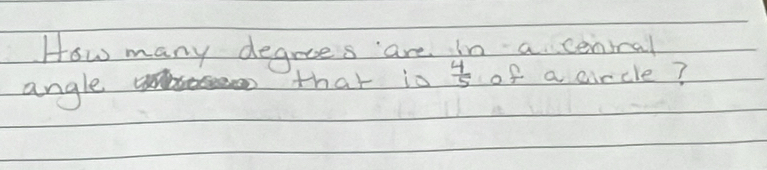 How many degrees are in a central
angle that is 4/5 of a circle?